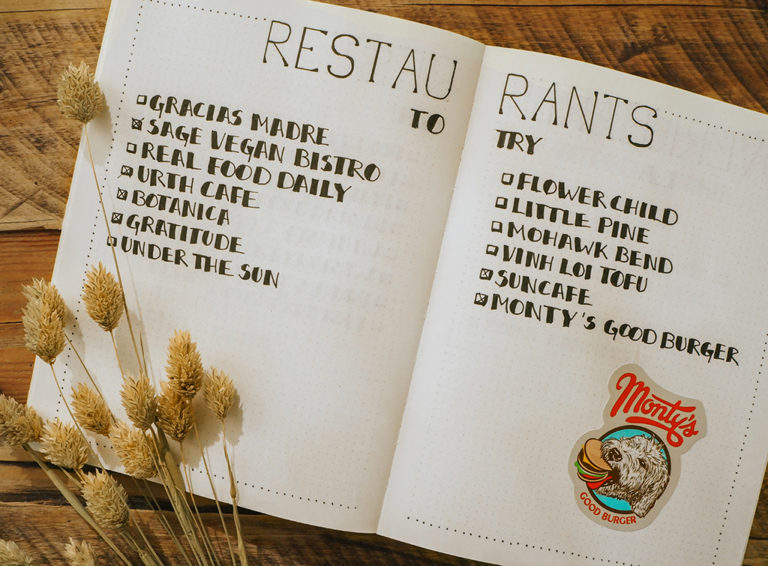 RESTAURANTS
TO TRY
GRACIAS MADRE
SAGE VEGAN BISTRO
REAL FOOD DAILY
URTH CAFE
BOTANICA
GRATITUDE
UNDER THE SUN
FLOWER CHILD
LITTLE PINE
MOHAWK BEND
VINH LOI TOFU
SUNCAFE
MONTY'S GOOD BURGER
Monty's
GOOD BURGER